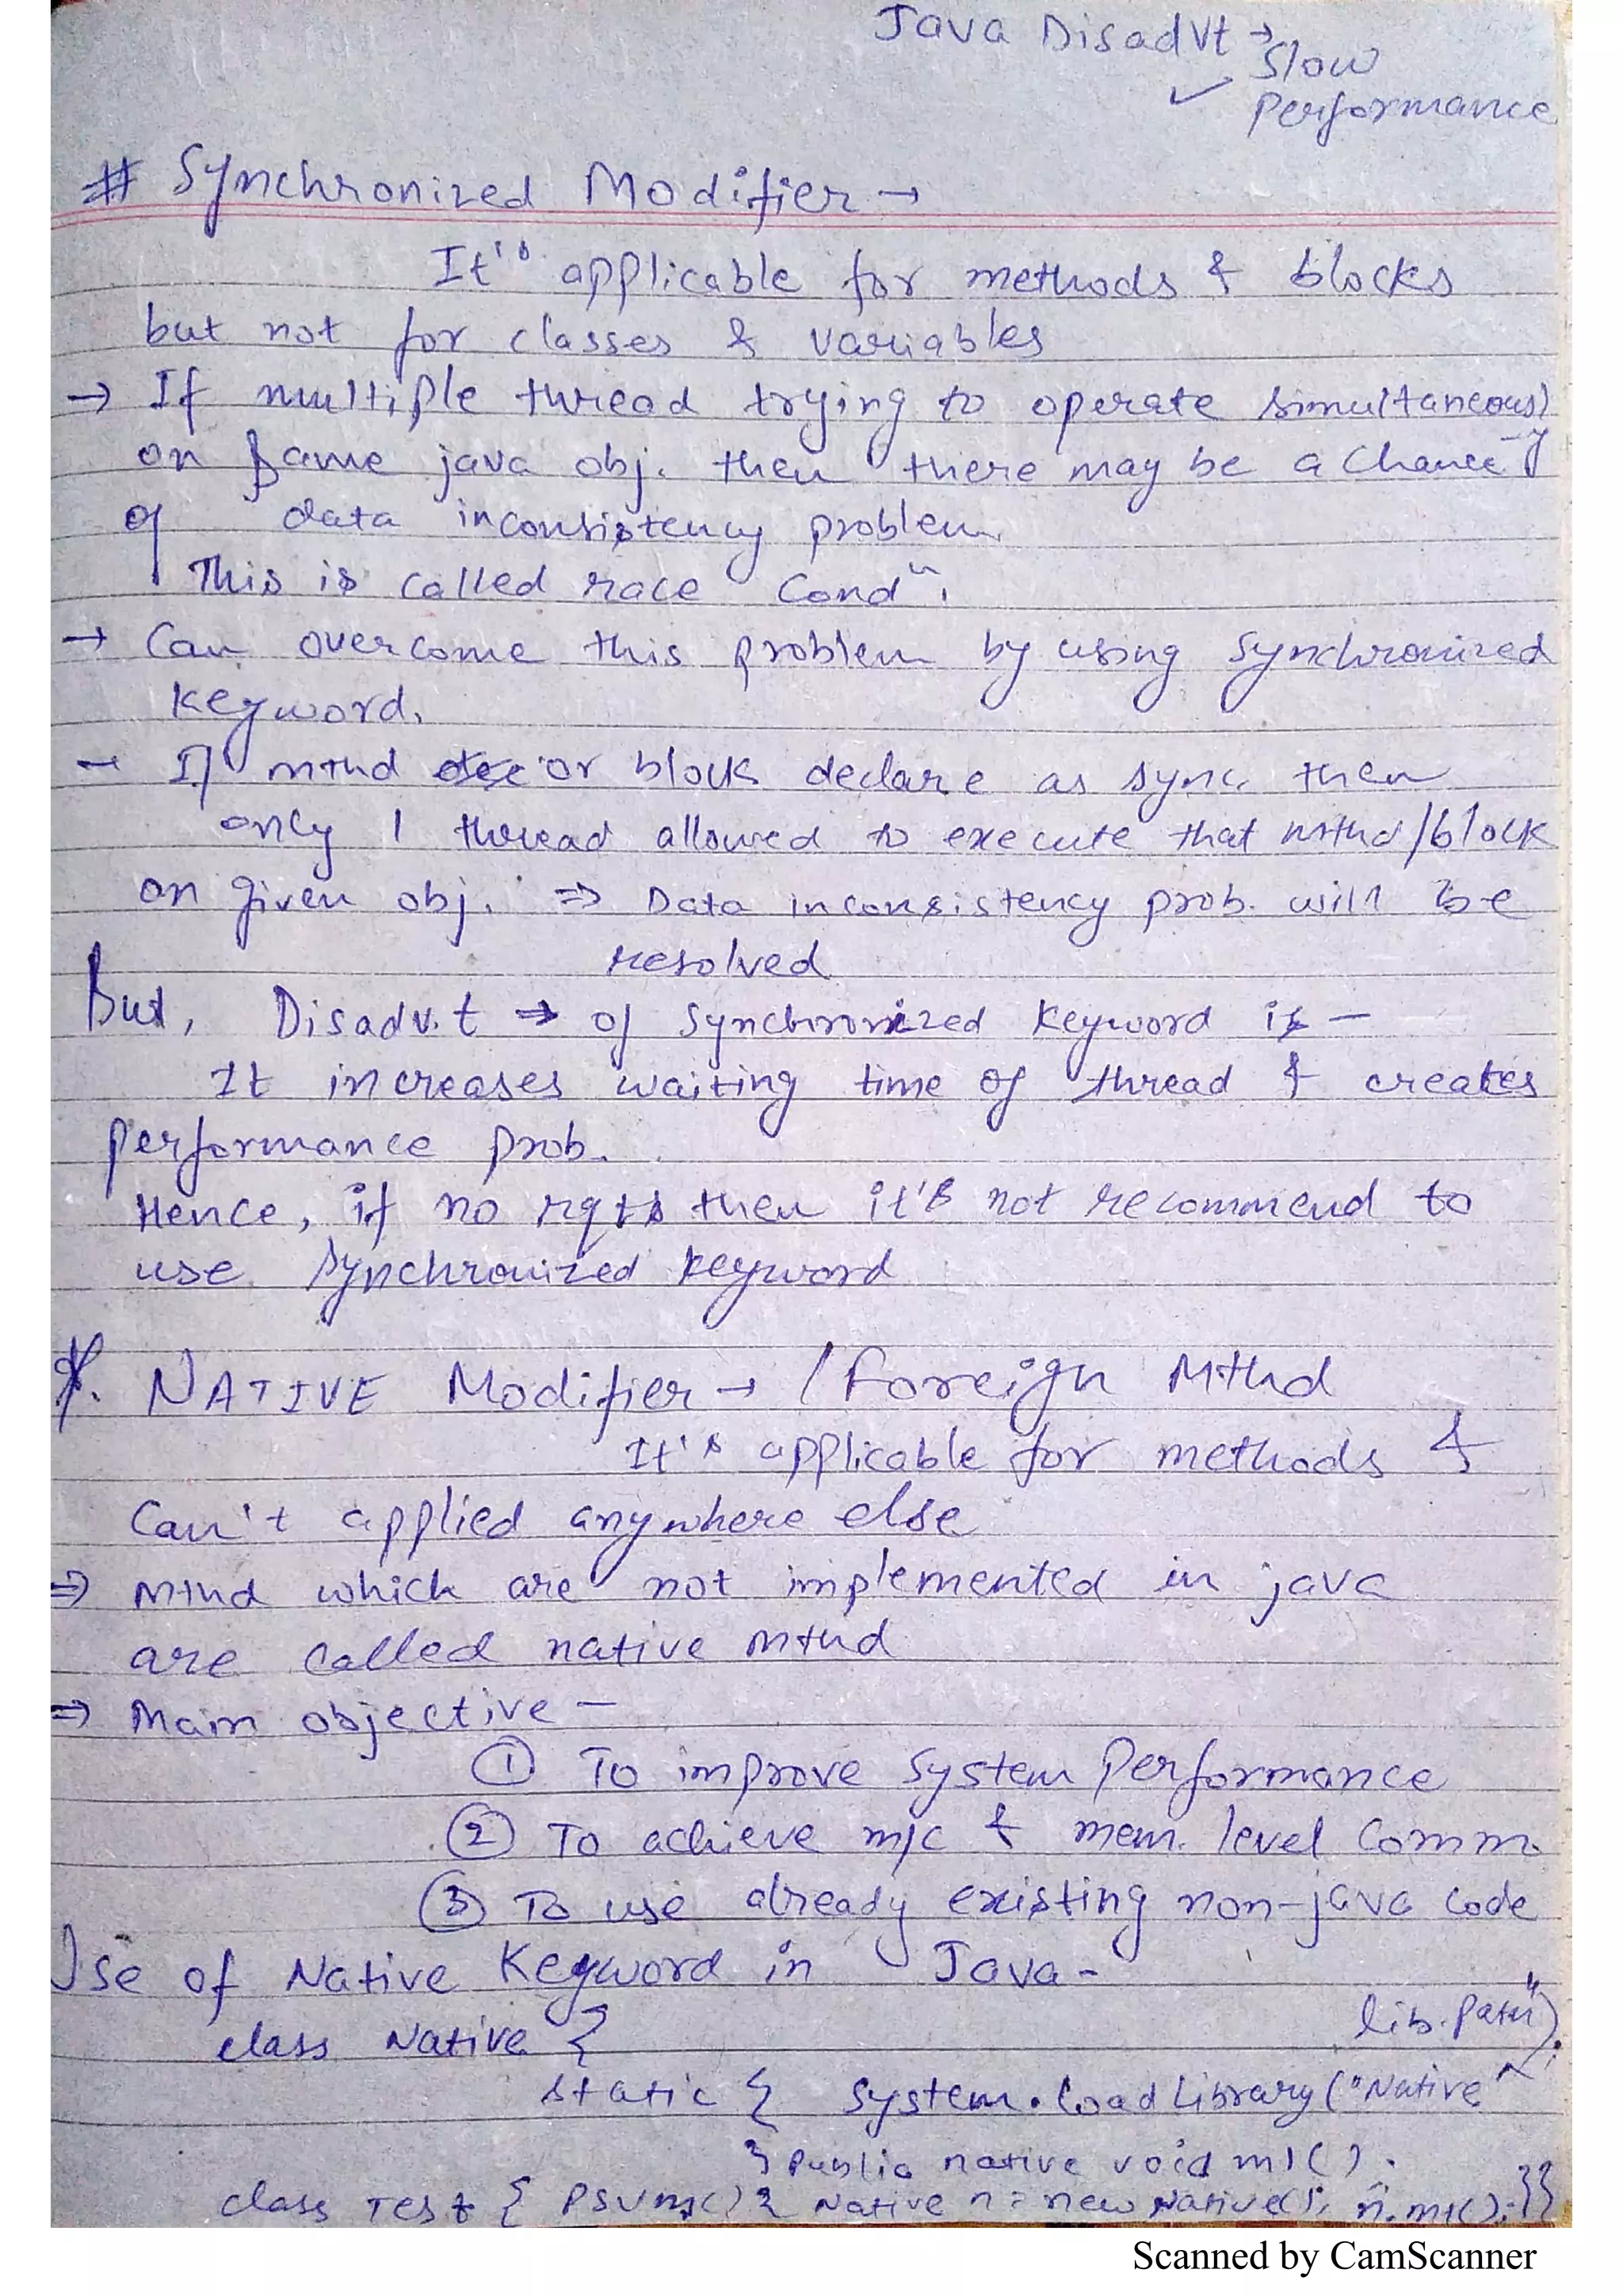 Java DisadVt →
Slow
✓ Performance
# Synchronized Modifier →
It's applicable for methods & blocks
but not for classes & variables
→ If multiple thread trying to operate simultaneously
on same java obj. then there may be a chance
of data inconsistency problem
This is called race Condn.
→ Can overcome this problem by using synchronized
keyword.
→ If mthd or block declare as sync. then
only 1 thread allowed to execute that mthd/block
on given obj. ⇒ Data inconsistency prob. will be
resolved
But, Disadv.t → of synchronized keyword is –
It increases waiting time of thread & creates
performance prob.
Hence, if no rqts then it's not recommend to
use synchronized keyword
*. NATIVE Modifier → / Foreign Mthd
It's applicable for methods &
Can't applied anywhere else
⇒ Mthd which are not implemented in java
are called native mthd
⇒ Main objective –
① To improve system Performance
② To achieve m/c & mem. level Comm.
③ To use already existing non-java code
Use of Native Keyword in Java -
class Native {
lib.Path");
static { System.loadLibrary("Native
} Public native void m1();
class Test { PSVM() { Native n = new Native(); n.m1(); }}
Scanned by CamScanner